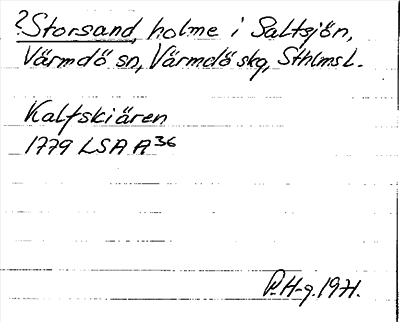 ?Storsand, holme i Saltsjön,
Värmdö sn, Värmdö skg, Sthlms L.
Kalfskiären
1779 LSA A36
P.H-g. 1971.